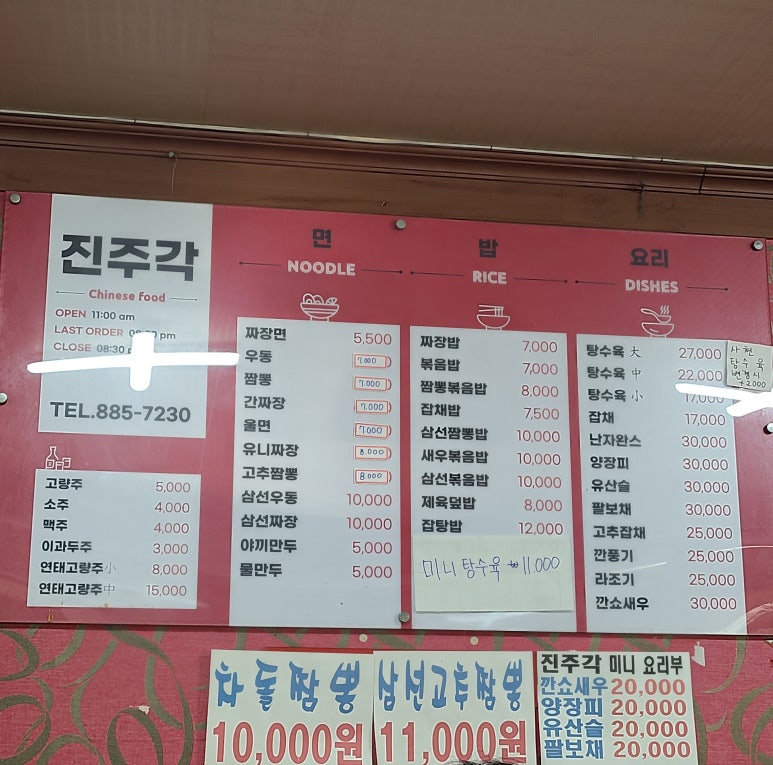 진주각
Chinese food
OPEN 11:00 am
LAST ORDER pm
CLOSE 08:30 p
TEL.885-7230
고량주 5,000
소주 4,000
맥주 4,000
이과두주 3,000
연태고량주小 8,000
연태고량주中 15,000
면
NOODLE
짜장면 5,500
우동 7.000
짬뽕 7.000
간짜장 7.000
울면 7.000
유니짜장 8.000
고추짬뽕 8.000
삼선우동 10,000
삼선짜장 10,000
야끼만두 5,000
물만두 5,000
밥
RICE
짜장밥 7,000
볶음밥 7,000
짬뽕볶음밥 8,000
잡채밥 7,500
삼선짬뽕밥 10,000
새우볶음밥 10,000
삼선볶음밥 10,000
제육덮밥 8,000
잡탕밥 12,000
미니 탕수육 ₩11.000
요리
DISHES
탕수육 大 27,000
탕수육 中 22,000
탕수육 小 17,000
잡채 17,000
난자완스 30,000
양장피 30,000
유산슬 30,000
팔보채 30,000
고추잡채 25,000
깐풍기 25,000
라조기 25,000
깐쇼새우 30,000
사천
탕수육
변경시
2000
차돌짬뽕
10,000원
삼선고추짬뽕
11,000원
진주각 미니 요리부
깐쇼새우 20,000
양장피 20,000
유산슬 20,000
팔보채 20,000